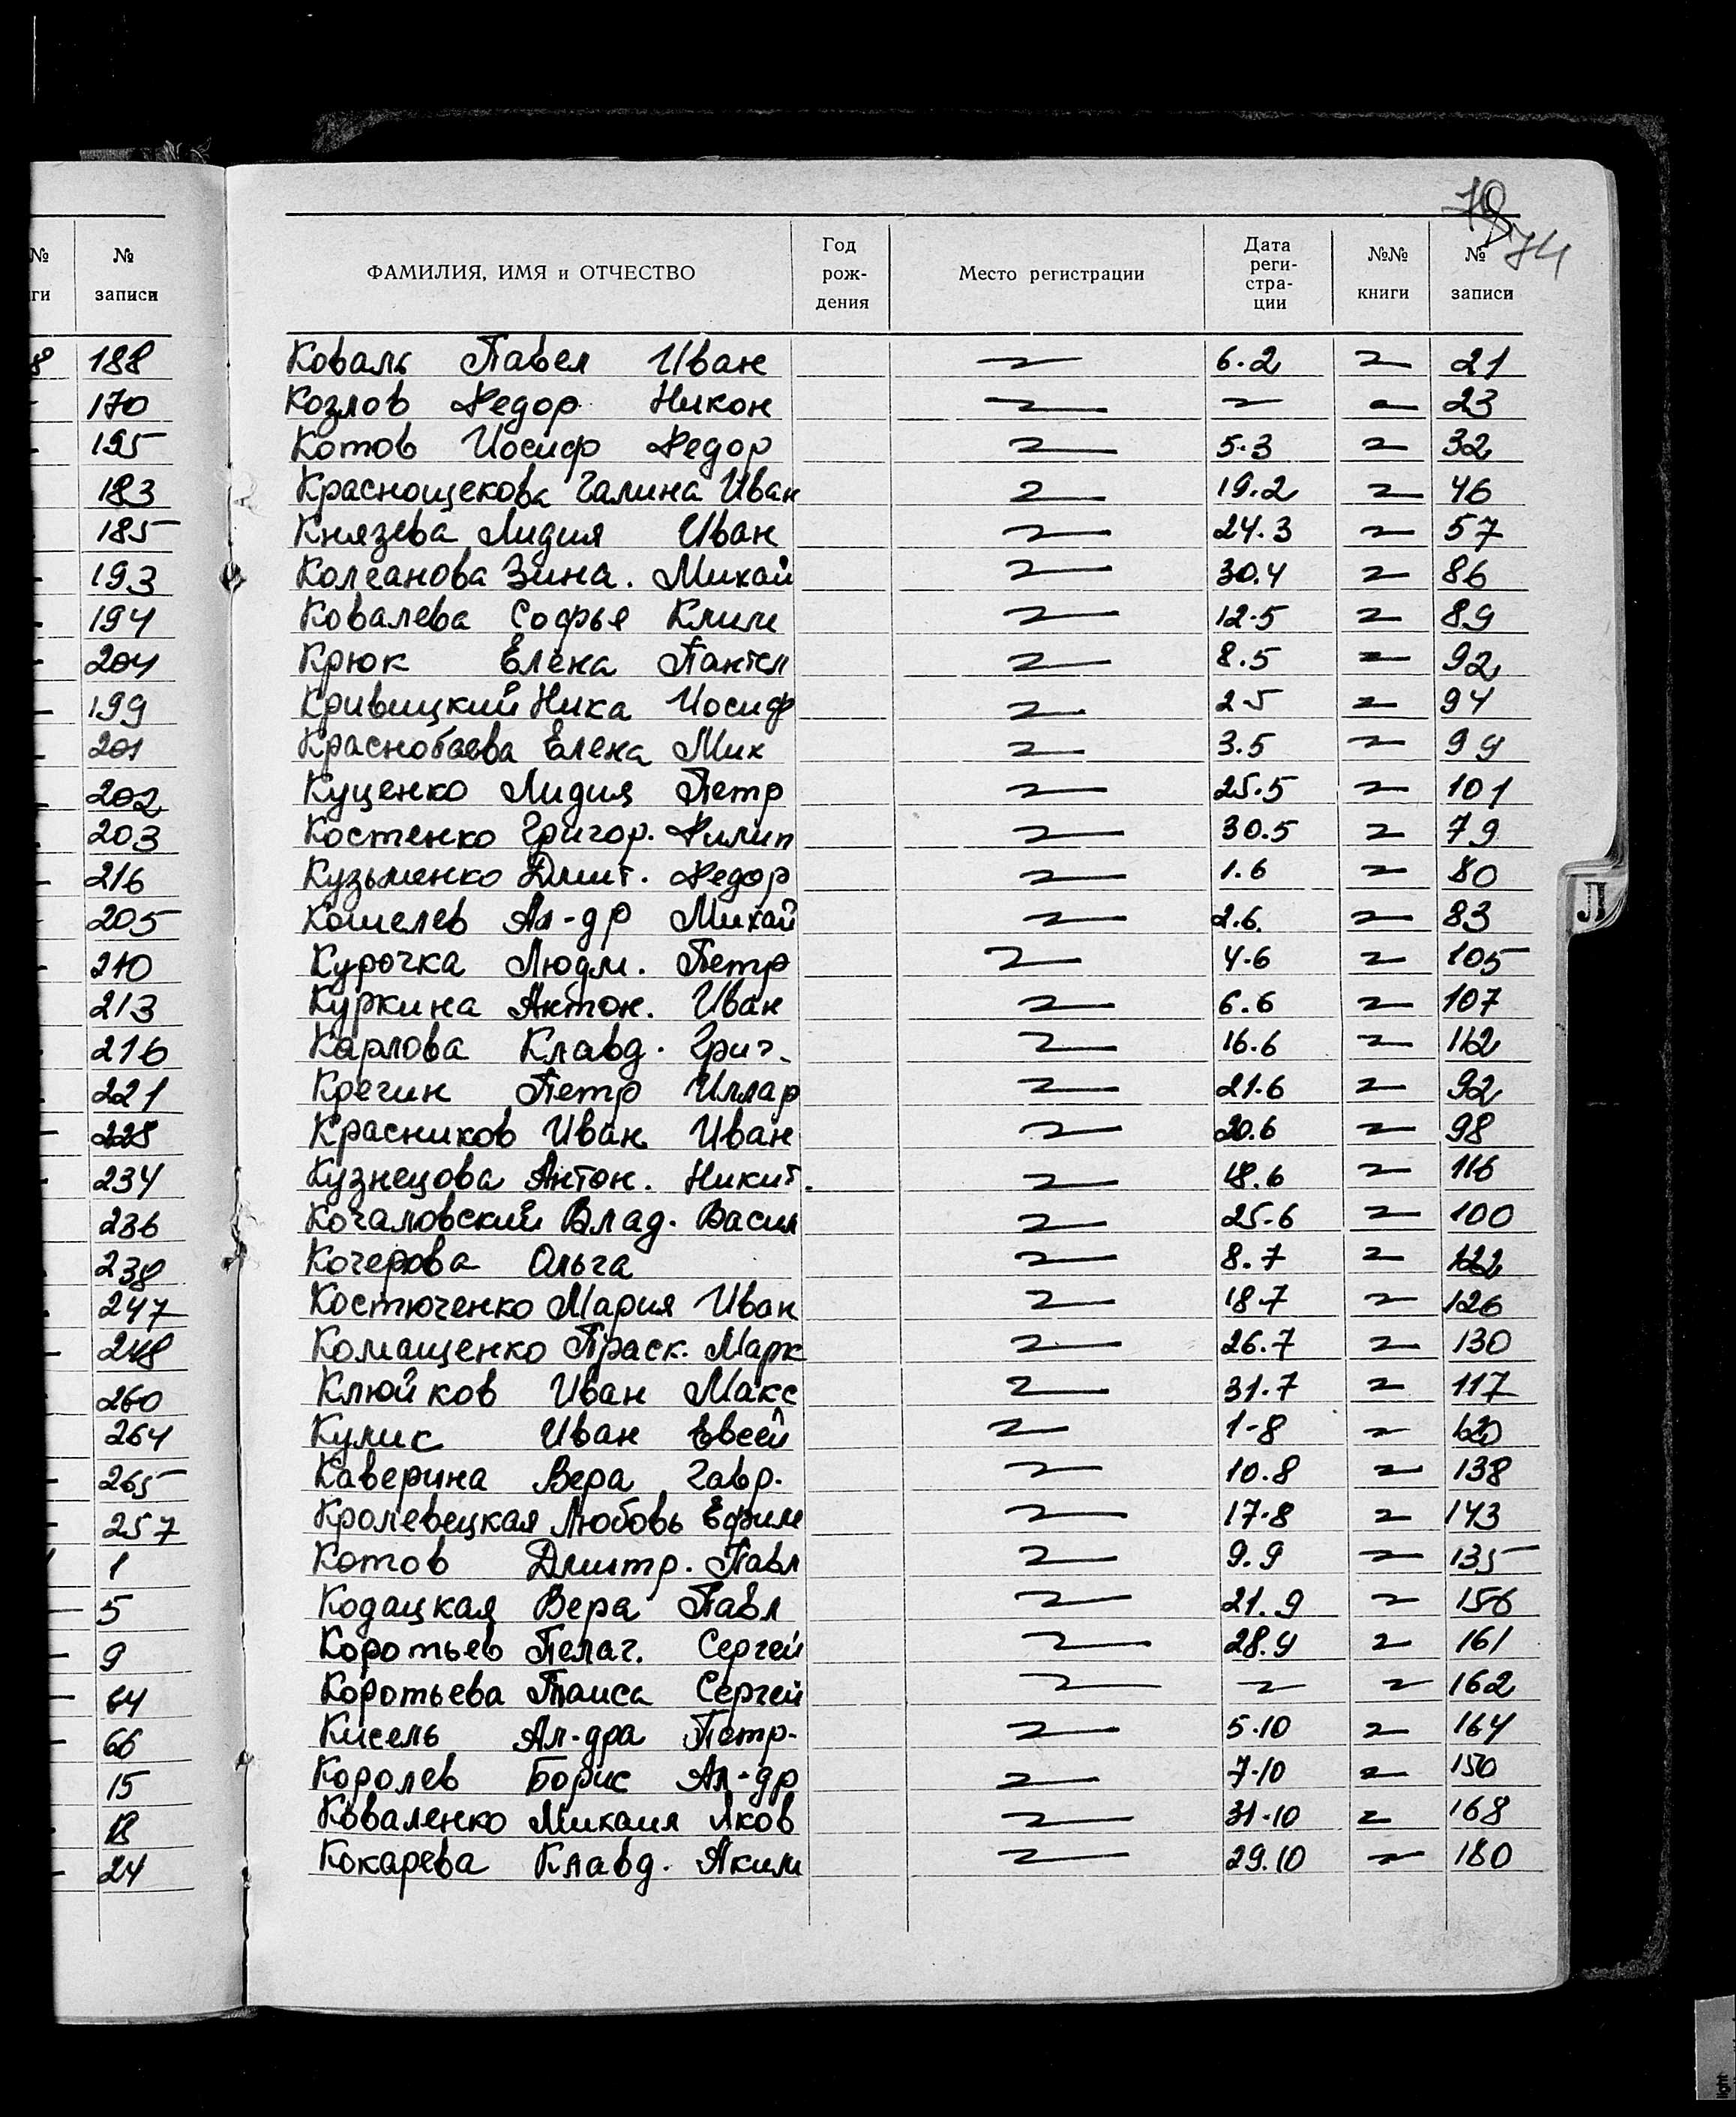 70
74
№ № ФАМИЛИЯ, ИМЯ и ОТЧЕСТВО Год рож- дения Место регистрации Дата реги- стра- ции №№ книги № записи
ги записи
8 188 Коваль Павел Иван 6.2 21
170 Козлов Федор Никон 23
195 Котов Иосиф Федор 5.3 32
183 Краснощекова Галина Иван 19.2 46
185 Князева Лидия Иван 24.3 57
193 Колганова Зина. Михай 30.4 86
194 Ковалева Софья Клим 12.5 89
204 Крюк Елена Пантел 8.5 92
199 Кривицкий Ника Иосиф 2-5 94
201 Краснобаева Елена Мих 3.5 99
202 Куценко Лидия Петр 25.5 101
203 Костенко Григор. Филип 30.5 79
216 Кузьменко Дмит. Федор 1.6 80
205 Кошелев Ал-др Михай 2.6. 83
210 Курочка Людм. Петр 4-6 105
213 Куркина Антон. Иван 6.6 107
216 Карлова Клавд. Григ. 16.6 112
221 Кречин Петр Иллар 21.6 92
228 Красников Иван Иван 20.6 98
234 Кузнецова Антон. Никит. 18.6 116
236 Кочаловский Влад. Васил 25-6 100
238 Кочерова Ольга 8.7 122
247 Костюченко Мария Иван 18-7 126
248 Комащенко Праск. Марк 26.7 130
260 Клюйков Иван Макс 31.7 117
264 Кулис Иван Евсей 1-8 120
265 Каверина Вера Гавр. 10.8 138
257 Кролевецкая Любовь Ефим 17-8 143
1 Котов Дмитр. Павл 9.9 135
5 Кодацкая Вера Павл 21.9 156
9 Коротьев Пелаг. Сергей 28.9 161
64 Коротьева Таиса Сергей 162
66 Кисель Ал-дра Петр. 5-10 164
15 Королев Борис Ал-др 7-10 150
18 Коваленко Михаил Яков 31-10 168
24 Кокарева Клавд. Аким 29.10 180
Л
light